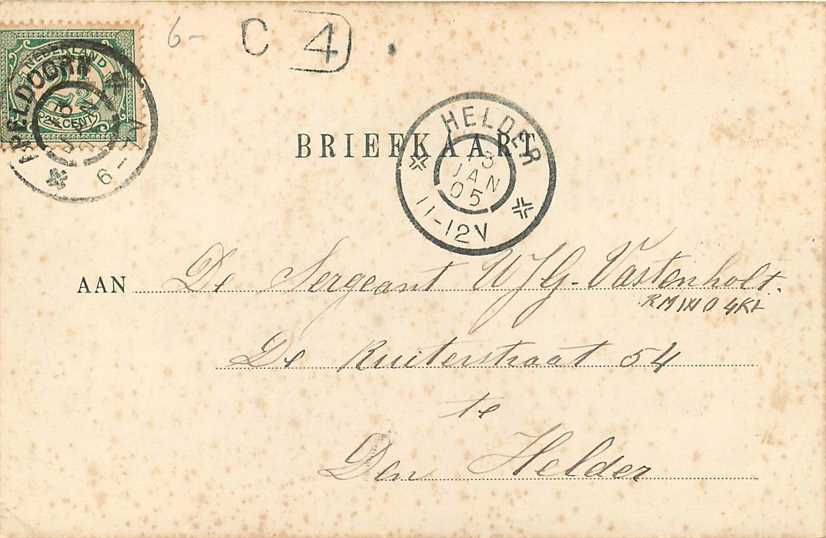 6-
C 4
NEDERLAND
2½ CENT
APELDOORN
6-7V
BRIEFKAART
HELDER
13
JAN
05
11-12V
AAN De Sergeant WJG. Vastenholt.
De Ruiterstraat 54
te
Den Helder